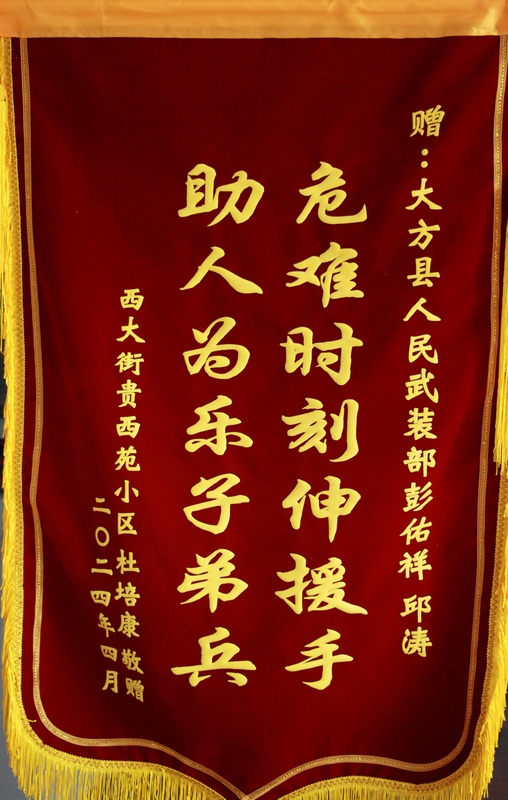 赠：大方县人民武装部彭佑祥 邱涛
危难时刻伸援手
助人为乐子弟兵
西大街贵西苑小区 杜培康 敬赠
二〇二四年四月